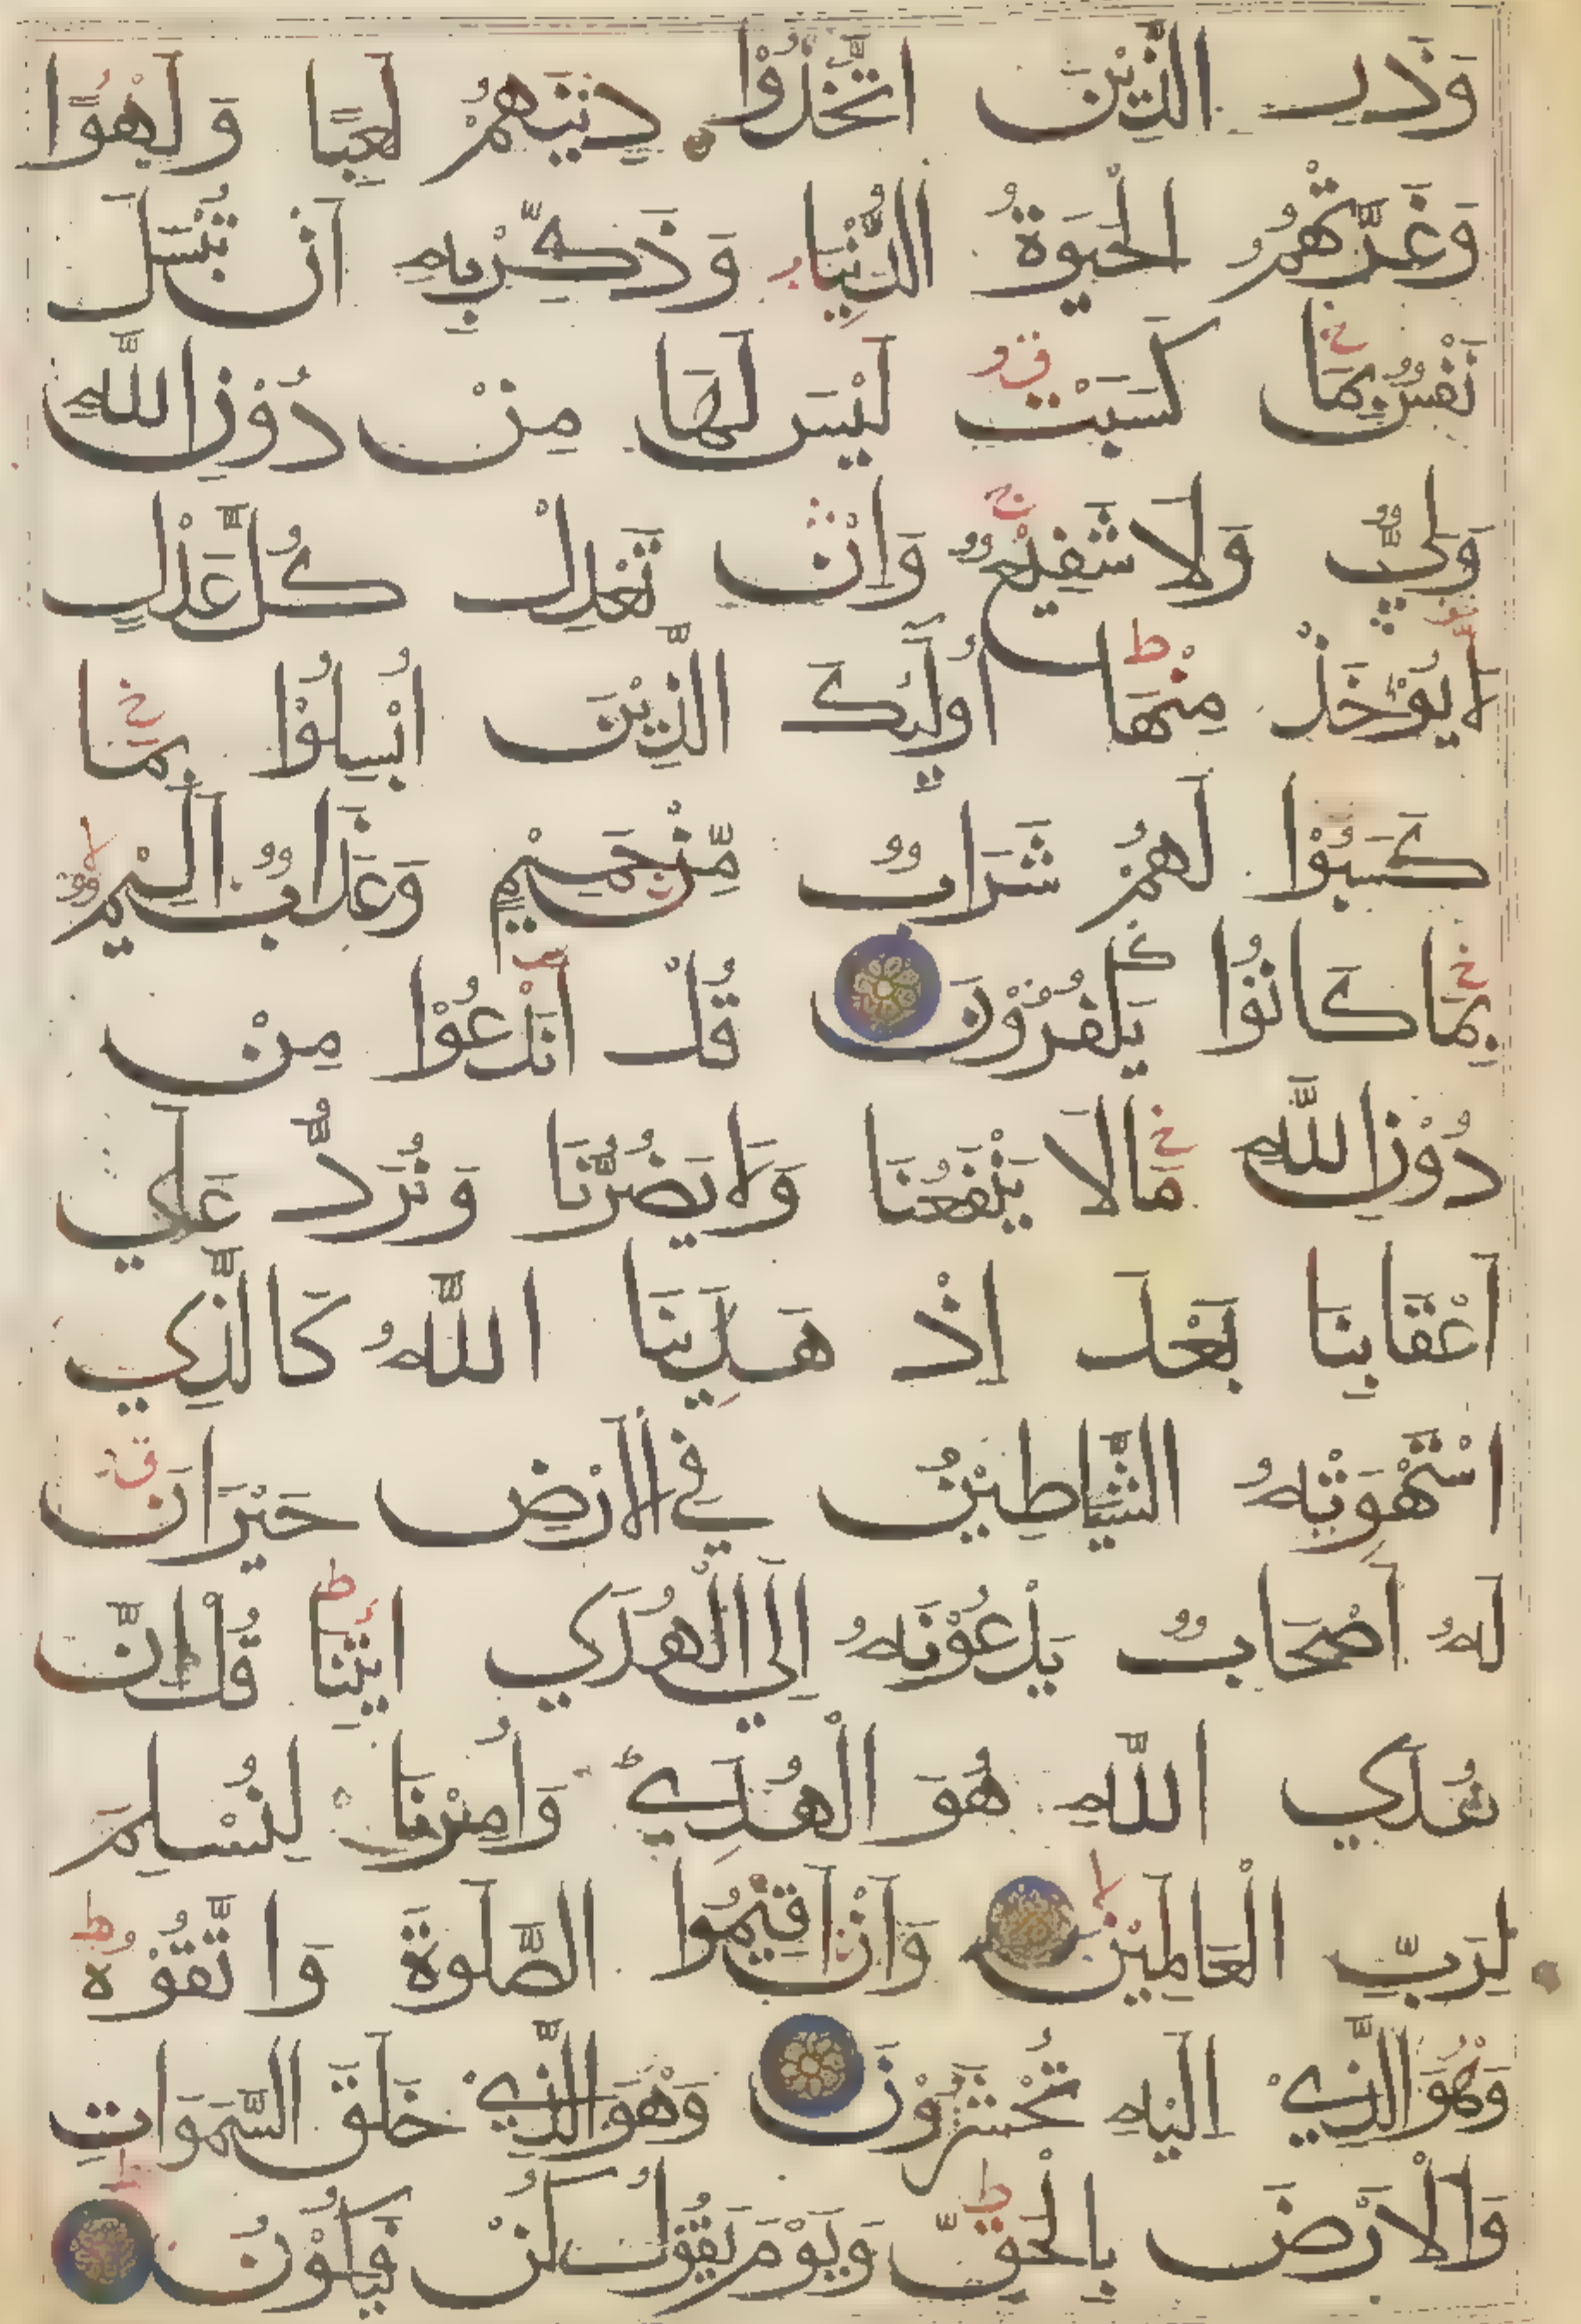 وَذَرِ الَّذِيْنَ اتَّخَذُوْا دِيْنَهُمْ لَعِبًا وَلَهْوًا
وَغَرَّتْهُمُ الْحَيٰوةُ الدُّنْيَا وَذَكِّرْ بِهٖ اَنْ تُبْسَلَ
نَفْسٌ بِمَا كَسَبَتْ لَيْسَ لَهَا مِنْ دُوْنِ اللّٰهِ
وَلِيٌّ وَلَا شَفِيْعٌ وَاِنْ تَعْدِلْ كُلَّ عَدْلٍ
لَا يُؤْخَذْ مِنْهَا اُولٰٓئِكَ الَّذِيْنَ اُبْسِلُوْا بِمَا
كَسَبُوْا لَهُمْ شَرَابٌ مِّنْ حَمِيْمٍ وَعَذَابٌ اَلِيْمٌ
بِمَا كَانُوْا يَكْفُرُوْنَ قُلْ اَنَدْعُوْا مِنْ
دُوْنِ اللّٰهِ مَا لَا يَنْفَعُنَا وَلَا يَضُرُّنَا وَنُرَدُّ عَلٰي
اَعْقَابِنَا بَعْدَ اِذْ هَدٰينَا اللّٰهُ كَالَّذِي
اسْتَهْوَتْهُ الشَّيَاطِيْنُ فِي الْاَرْضِ حَيْرَانَ
لَهٗ اَصْحَابٌ يَدْعُوْنَهٗ اِلَي الْهُدَي ائْتِنَا قُلْ اِنَّ
هُدَي اللّٰهِ هُوَ الْهُدٰي وَاُمِرْنَا لِنُسْلِمَ
لِرَبِّ الْعَالَمِيْنَ وَاَنْ اَقِيْمُوا الصَّلٰوةَ وَاتَّقُوْهُ
وَهُوَ الَّذِيْ اِلَيْهِ تُحْشَرُوْنَ وَهُوَ الَّذِيْ خَلَقَ السَّمٰوَاتِ
وَالْاَرْضَ بِالْحَقِّ وَيَوْمَ يَقُوْلُ كُنْ فَيَكُوْنُ